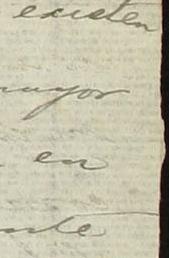 existen
mayor
en
nte